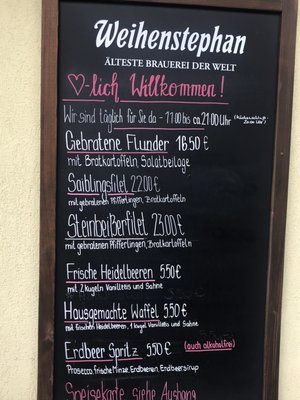 Weihenstephan
ÄLTESTE BRAUEREI DER WELT
♡-lich Willkommen!
Wir sind täglich für Sie da - 11 00 bis ca. 21 00 Uhr
Gebratene Flunder 16.50 €
mit Bratkartoffeln, Salatbeilage
Saiblingsfilet 22.00 €
mit gebratenen Pfifferlingen, Bratkartoffeln
Steinbeißerfilet 23.00 €
mit gebratenen Pfifferlingen, Bratkartoffeln
Frische Heidelbeeren 5.50 €
mit 2 Kugeln Vanilleeis und Sahne
Hausgemachte Waffel 5.50 €
mit frischen Heidelbeeren, 1 Kugel Vanilleeis und Sahne
Erdbeer Spritz 5.50 € (auch alkoholfrei)
Prosecco, frische Minze, Erdbeeren, Erdbeersirup
Speisekarte siehe Aushang